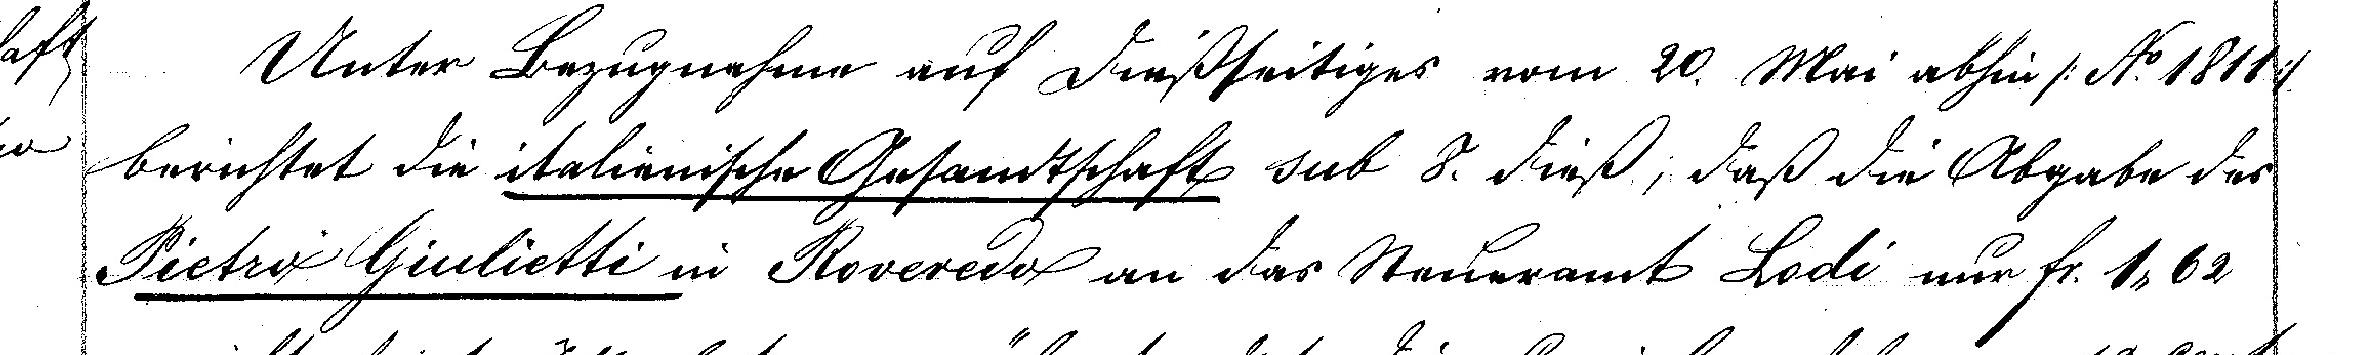 Unter Bezugnahme auf Dießseitiges vom 20. Mai abhin /: No 1811 :/
berichtet die italienische Gesandtschaft sub 8. dieß, daß die Abgabe des
Pietro Giulietti in Roveredo an das Steueramt Lodi nur fr. 1„ 62